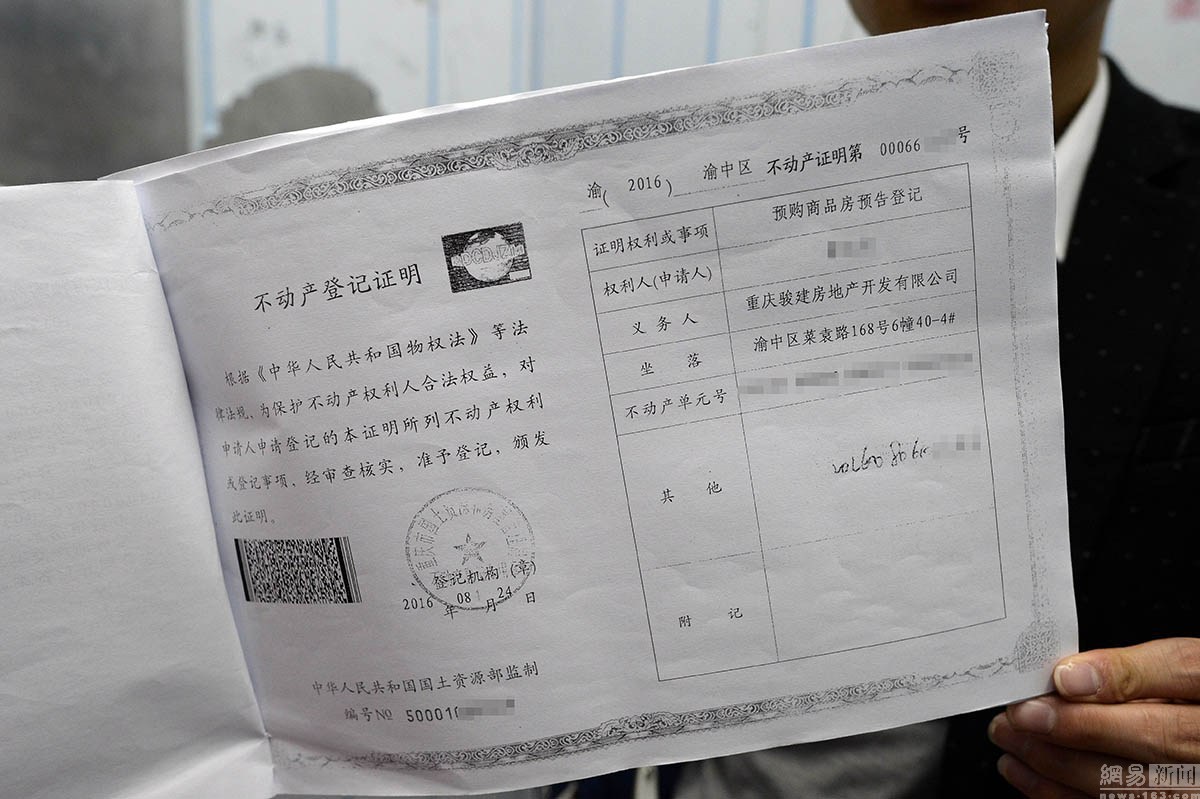 不动产登记证明
根据《中华人民共和国物权法》等法
律法规，为保护不动产权利人合法权益，对
申请人申请登记的本证明所列不动产权利
或登记事项，经审查核实，准予登记，颁发
此证明。
登记机构（章）
2016 年 08 月 24 日
中华人民共和国国土资源部监制
编号№ 50001
渝( 2016 ) 渝中区 不动产证明第 00066 号
证明权利或事项 预购商品房预告登记
权利人(申请人)
义务人 重庆骏建房地产开发有限公司
坐落 渝中区菜袁路168号6幢40-4#
不动产单元号
其他
附记
網易 新闻
news.163.com